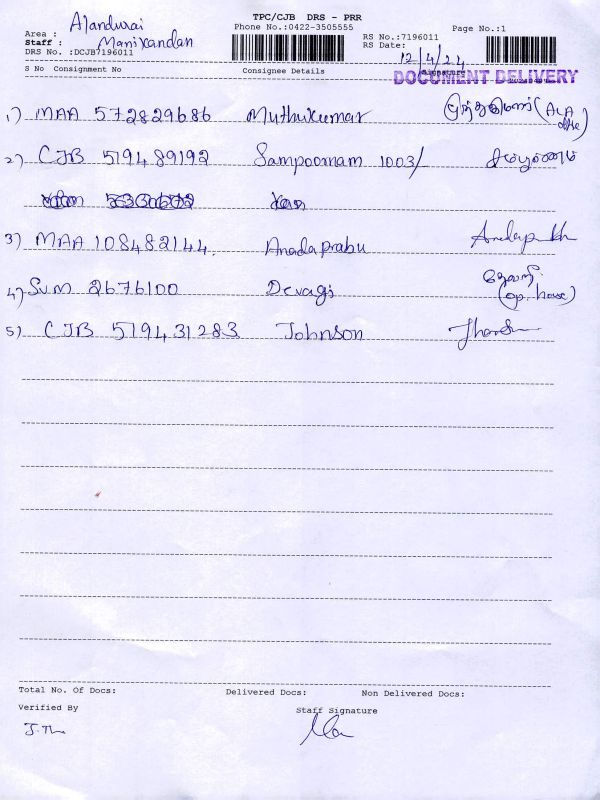 TPC/CJB DRS - PRR
Area : Alandurai
Phone No.:0422-3505555
Page No.:1
Staff : Manikandan
RS No.:7196011
DRS No. :DCJB7196011
RS Date: 12/4/24
S No Consignment No Consignee Details Signature
DOCUMENT DELIVERY
1) MAA 572829686 Muthukumar முத்துகுமார்
2) CJB 519489192 Sampoornam 1003/ சம்பூரணம்
3) MAA 108482144 Anadaprabu
4) SVM 2676100 Devagi தேவகி (op. house)
5) CJB 519431283 Johnson
Total No. Of Docs: Delivered Docs: Non Delivered Docs:
Verified By Staff Signature